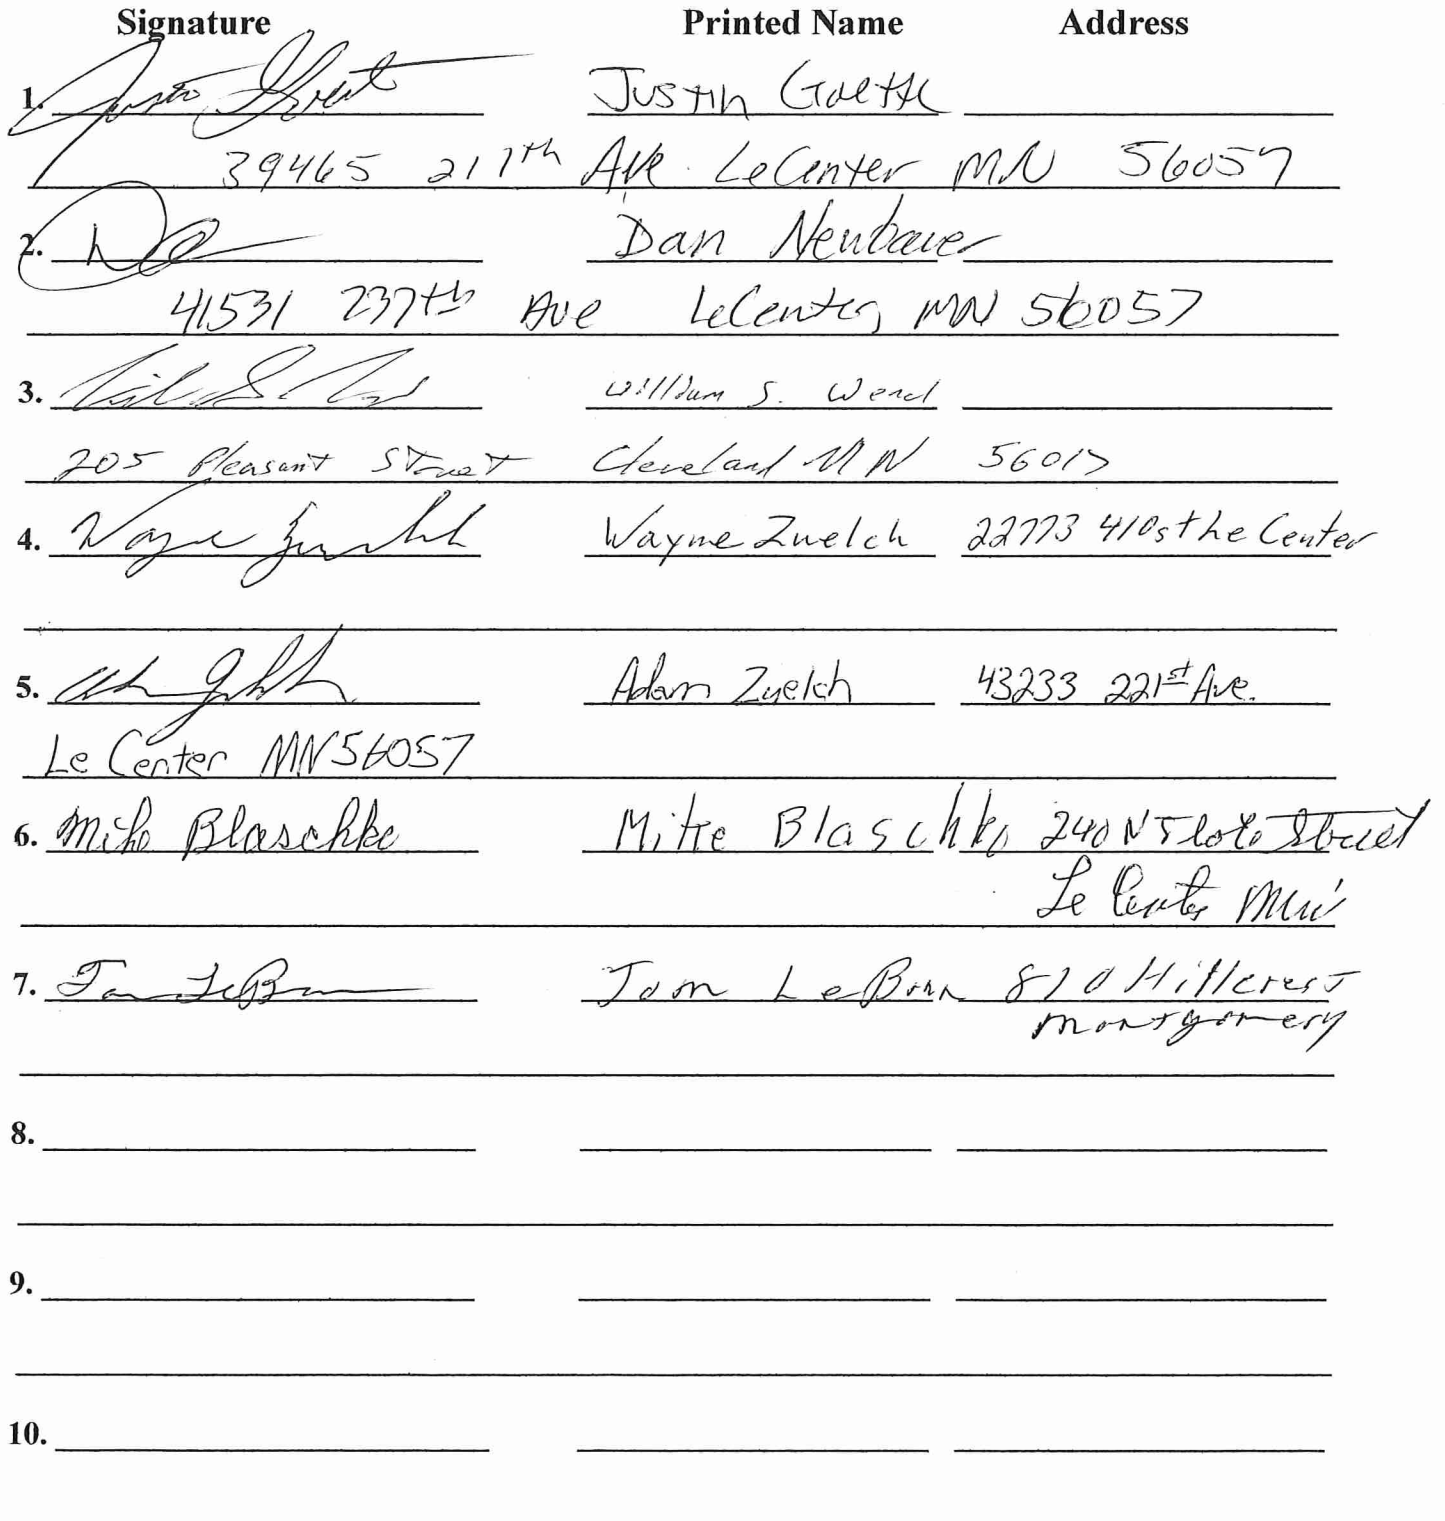 Signature Printed Name Address
1. Justin Goette
39465 211th Ave. LeCenter MN 56057
2. Dan Neubauer
41531 237th Ave LeCenter, MN 56057
3. William S. Wend
205 Pleasant Street Cleveland MN 56017
4. Wayne Zuelch Wayne Zuelch 22773 410st he Center
5. Adam Zuelch 43233 221st Ave.
Le Center MN 56057
6. Mike Blaschke Mike Blaschke 240 N Street
Le Center Minn
7. Tom LeBrun Tom LeBrun 810 Hillcrest
Montgomery
8.
9.
10.